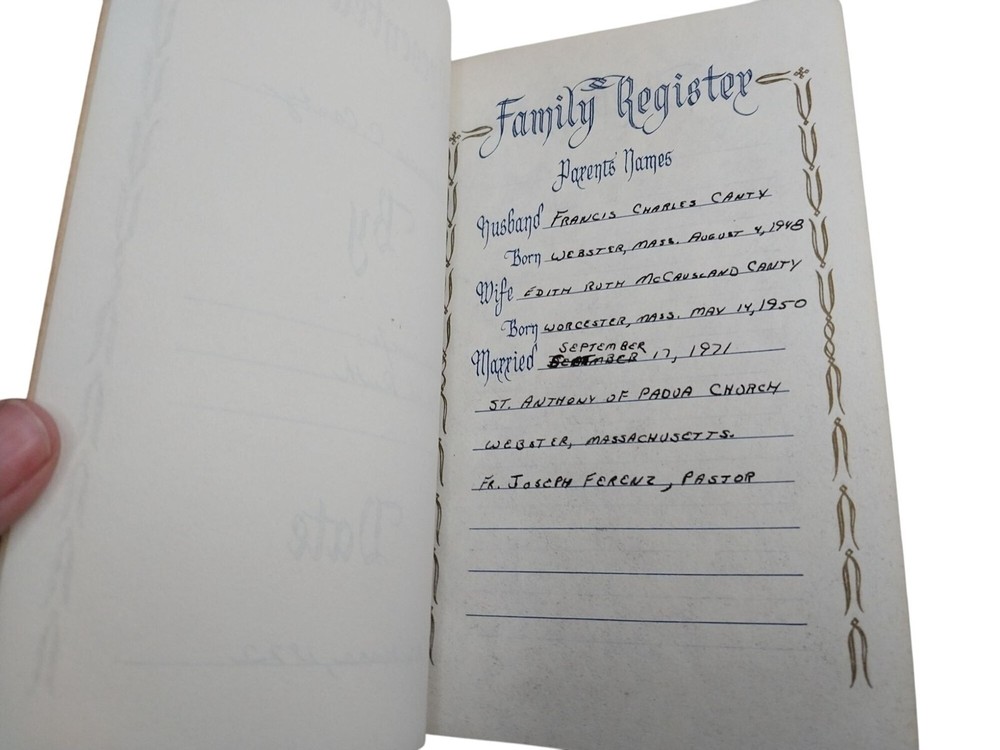 Family Register
Parents' Names
Husband FRANCIS CHARLES CANTY
Born WEBSTER, MASS. AUGUST 4, 1948
Wife EDITH RUTH MCCAUSLAND CANTY
Born WORCESTER, MASS. MAY 14, 1950
SEPTEMBER
Married 17, 1971
ST. ANTHONY OF PADUA CHURCH
WEBSTER, MASSACHUSETTS.
FR. JOSEPH FERENZ, PASTOR
By
Date